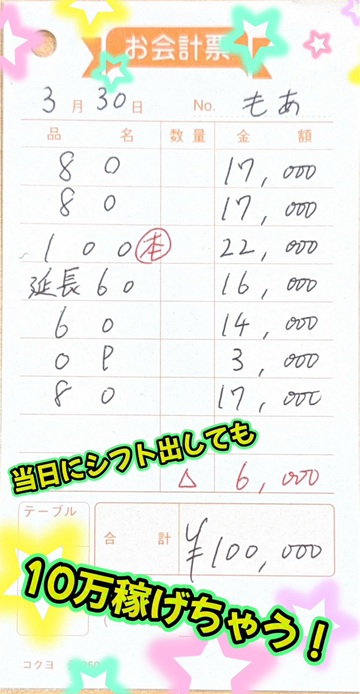 お会計票
3月30日 No. もあ
品名 数量 金額
80 17,000
80 17,000
100 本 22,000
延長60 16,000
60 14,000
OP 3,000
80 17,000
△ 6,000
当日にシフト出しても
テーブル
合計 ¥100,000
10万稼げちゃう!
コクヨ